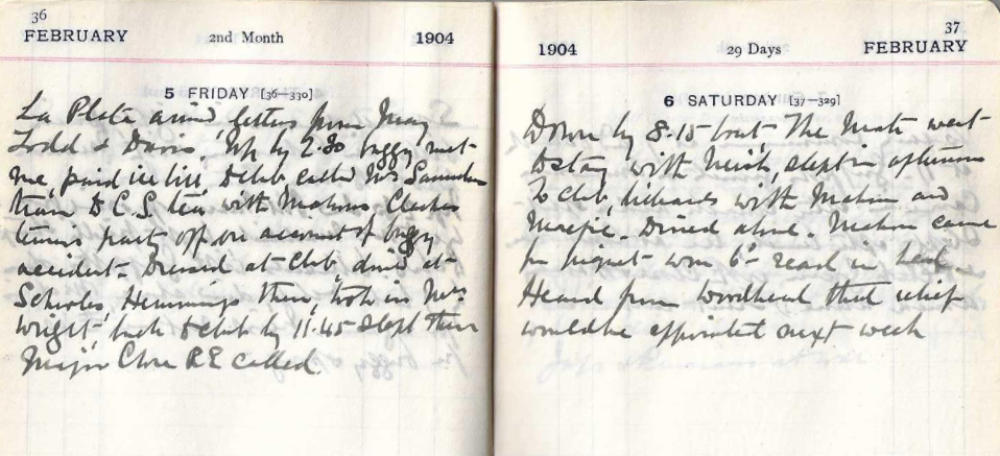 36
FEBRUARY 2nd Month 1904
5 FRIDAY [36—330]
La Plata arrived, letters from
Todd & Davis. Up by 2.30 buggy met
me, paid ice bill, to club called Mrs Saunders
train to C.S. tea with
tennis party off on account of buggy
accident. Dressed at Club, dined at
Scholes, Hemmings there, took in Mrs
Wright, back to club by 11.45 slept there
Major Close R.E called.
37
1904 29 Days FEBRUARY
6 SATURDAY [37—329]
Down by 8.15 boat. The Mate went
to stay with slept in afternoon
To club, billiards with and
Dined alone. came
for piquet - won 6d - read in bed
Heard from Woodhead that relief
would be appointed next week